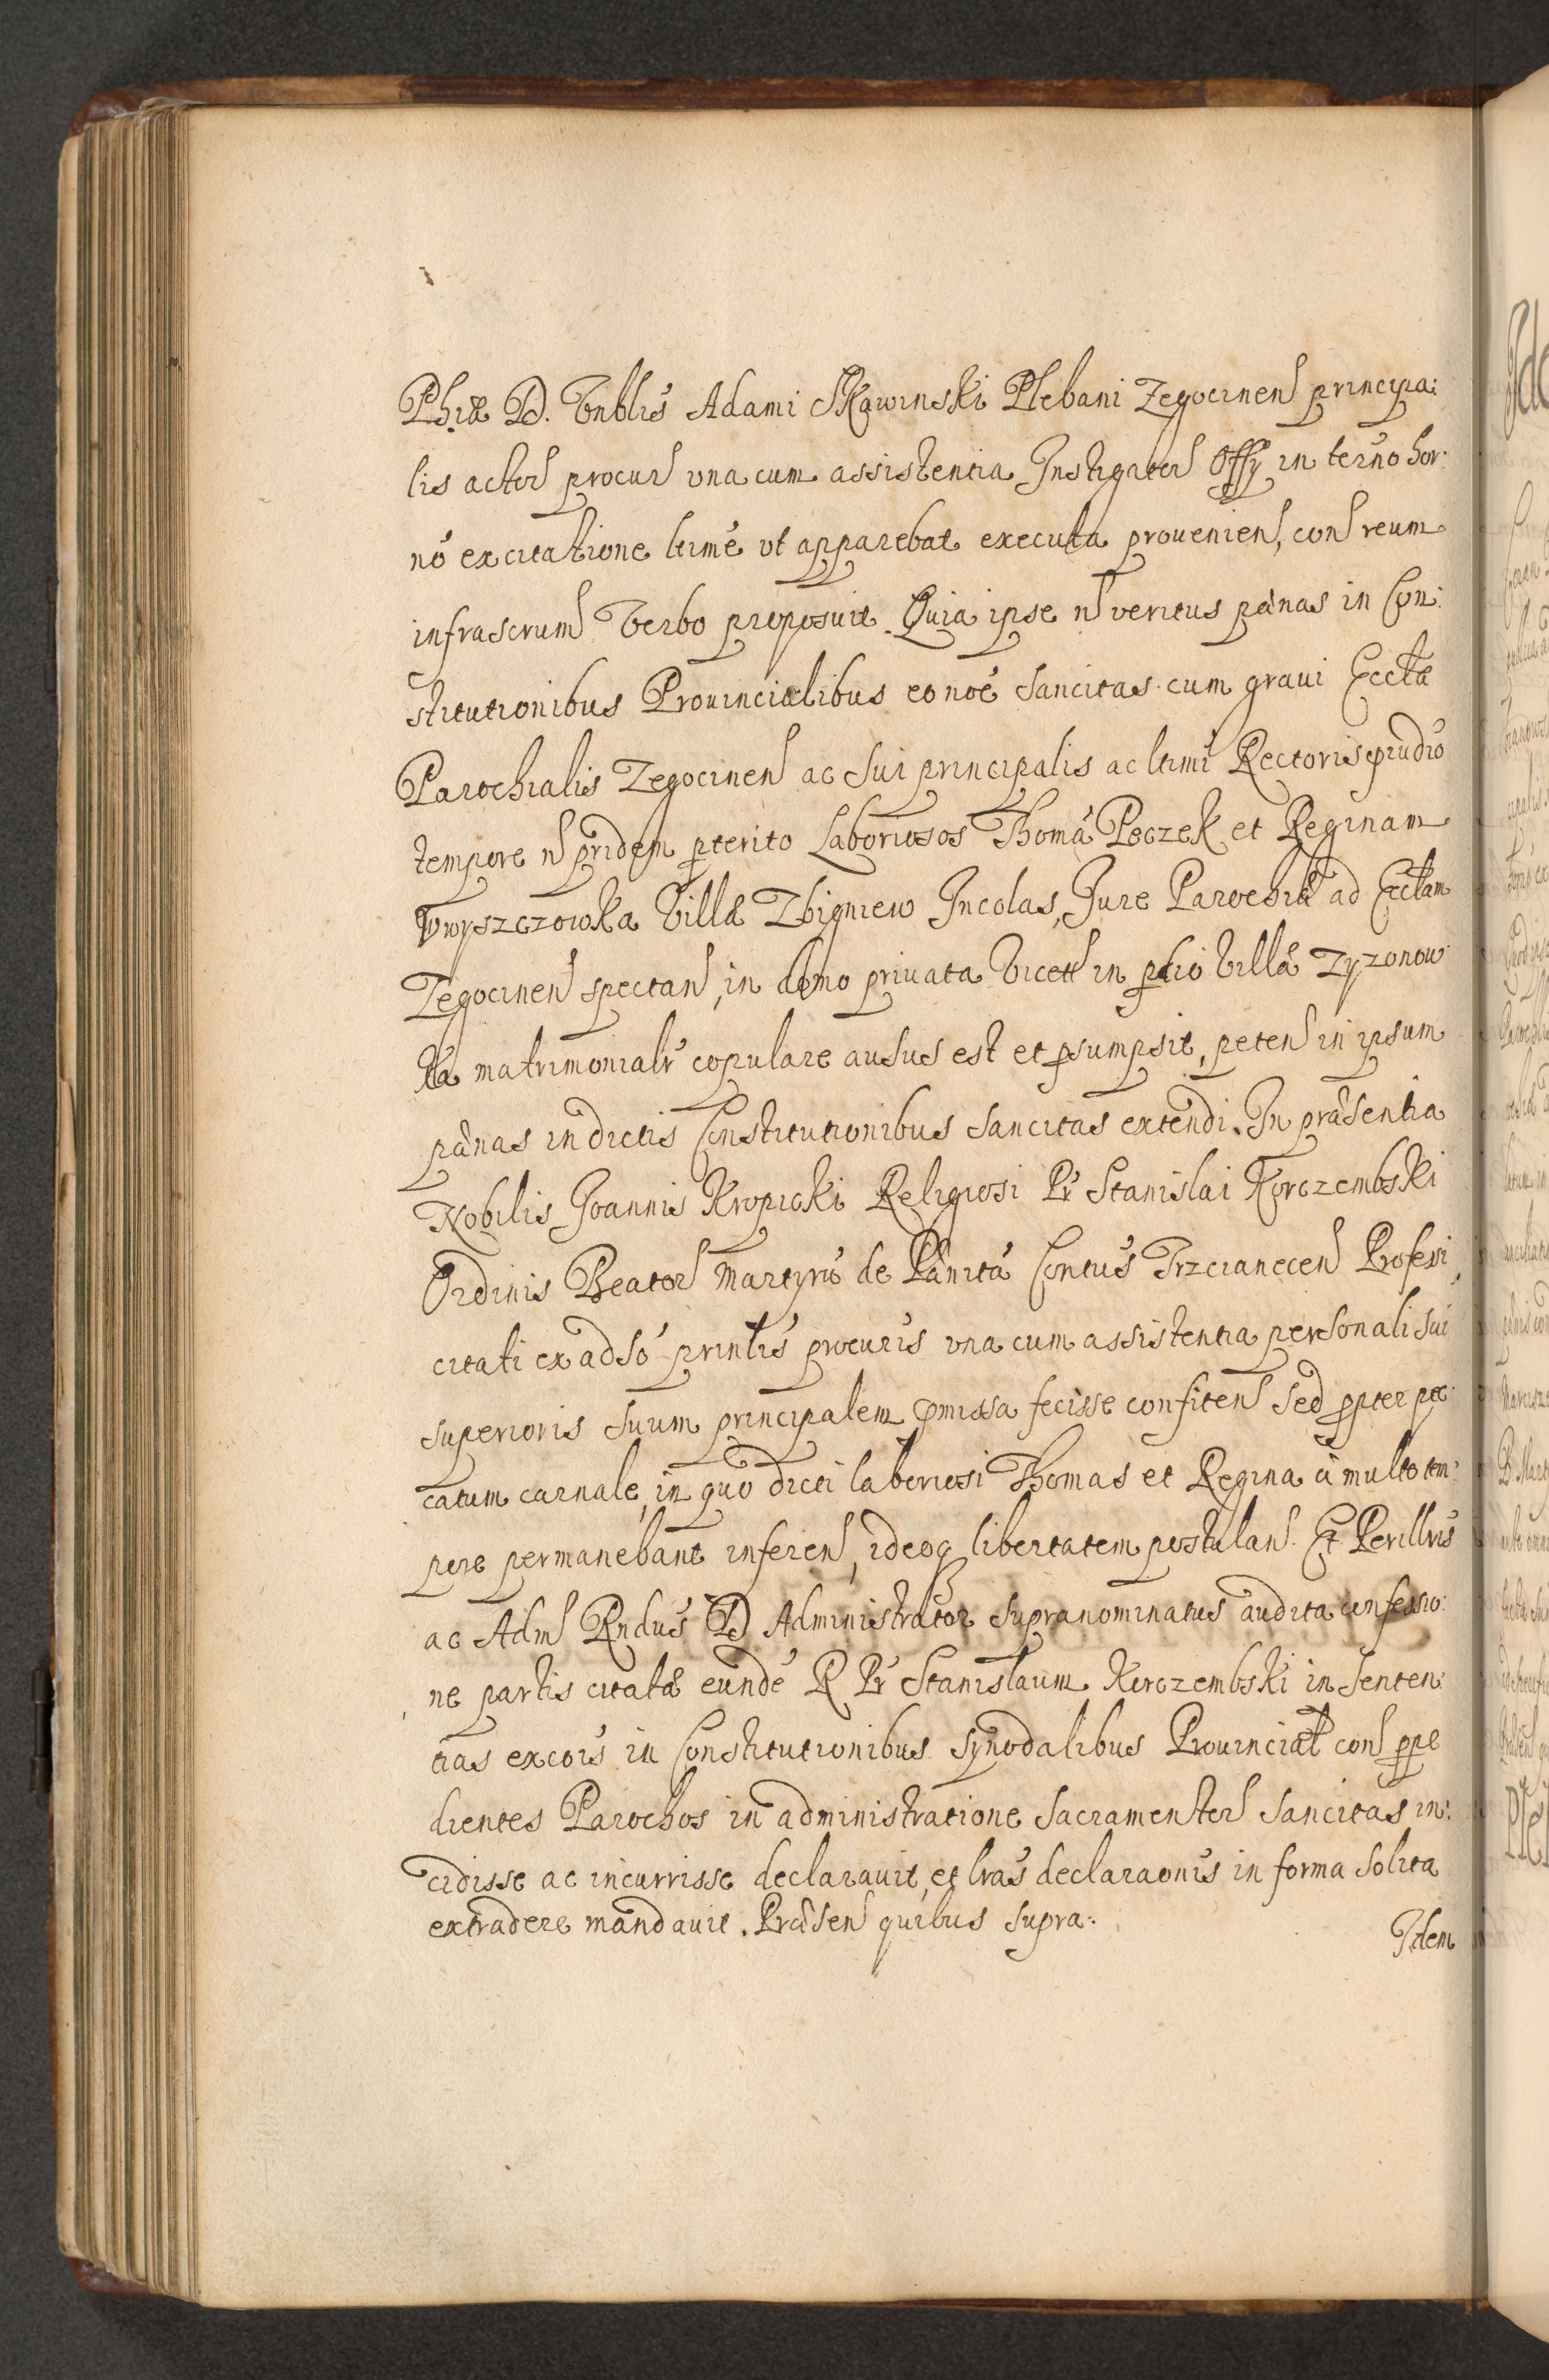 Phiæ D. Vnblis Adami Skawinski Plebani Zegocinen principa:
lis actor procur vna cum assistentia Instigator Offy in termo hor:
nó ex citatione ltimé vt apparebat executa prouenien, con reum
infrascrum Verbo proposuit. Quia ipse n veritus pænas in Con:
stitutionibus Prouincialibus eo noé sancitas cum graui Eccłæ
Parochialis Zegocinen ac sui principalis ac ltimi Rectoris piudió
tempore n pridem pterito Laboriosos Thomá Peczek et Reginam
Wyszczowka Villæ Zbigniew Incolas, Jure Parochiæ ad Eccłam
Zegocinen spectan, in domo priuata Vicett in pdió Villæ Zyzonow
ka matrimonialr copulare ausus est et psumpsit, peten in ipsum
pænas in dictis Constitutionibus sancitas extendi. In præsentia
Nobilis Joannis Kropicki Religiosi Pr Stanislai Korczembski
Ordinis Beator Martyrú de Pænitá Contus Trzcianecen Professi,
citati ex adsó prinlis procuris vna cum assistentia personali sui
superioris suum principalem pmissa fecisse confiten sed ppter pec:
catum carnale, in quo dicti laboriosi Thomas et Regina à multo tem:
pore permanebant inferen, ideoq libertatem postulan. Et Perillris
ac Adm Rndus D Administrator supranominatus audita confessio:
ne partis citatæ eundé R Pr Stanislaum Korczembski in senten:
tias excois in Constitutionibus Synodalibus Prouincial con ppe
dientes Parochos in administratione Sacramentor sancitas in:
cidisse ac incurrisse declarauit, et lras declaraonis in forma solita
extradere mandauit. Præsen quibus supra.
Idem